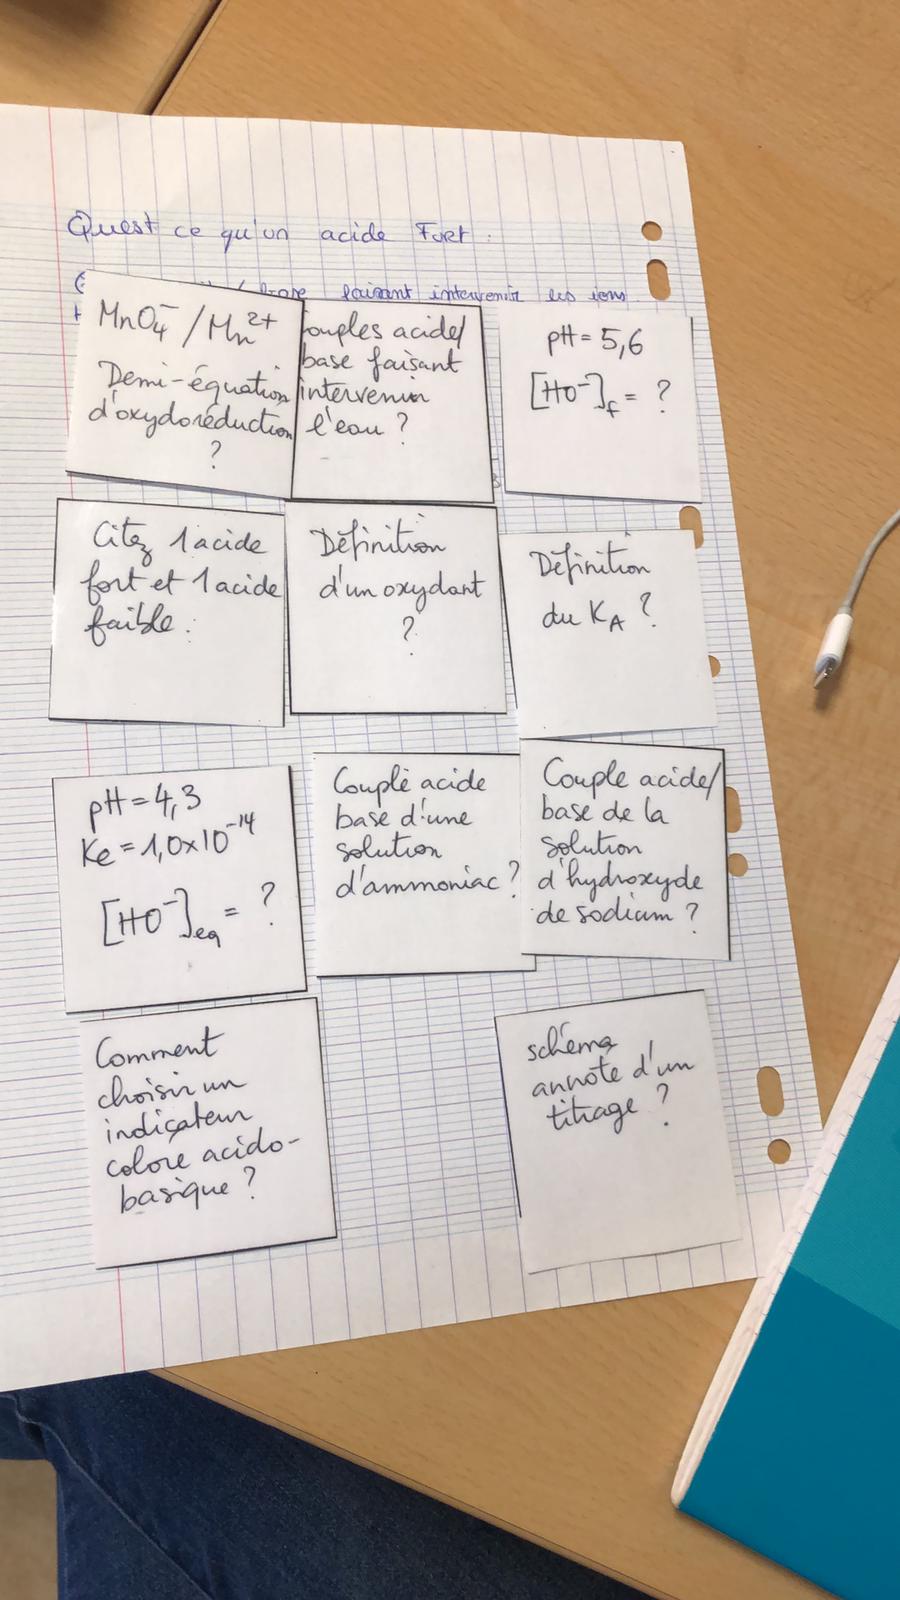 Quest ce qu'un acide Fort :
faisant intervenir les ions
MnO₄⁻ / Mn²⁺
Demi-équation
d'oxydoréduction
?
ouples acide/
base faisant
intervenir
l'eau ?
pH = 5,6
[HO⁻]f = ?
Citez 1 acide
fort et 1 acide
faible :
Définition
d'un oxydant
?
Définition
du KA ?
pH = 4,3
Ke = 1,0×10⁻¹⁴
[HO⁻]eq = ?
Couple acide
base d'une
solution
d'ammoniac ?
Couple acide/
base de la
solution
d'hydroxyde
de sodium ?
Comment
choisir un
indicateur
coloré acido-
basique ?
schéma
annoté d'un
titrage ?